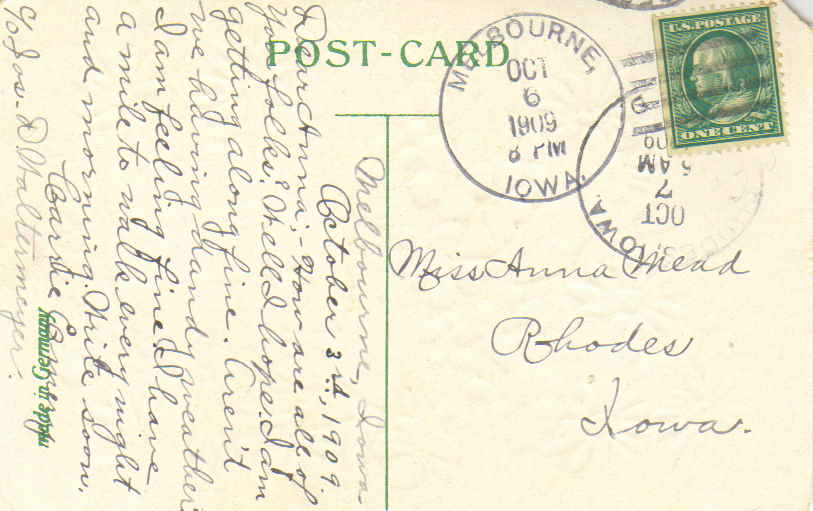 POST-CARD
U.S. POSTAGE
ONE CENT
MELBOURNE,
OCT
6
1909
8 PM
IOWA.
OCT
7
5 AM
IOWA.
Miss Anna Mead
Rhodes
Iowa.
Melbourne, Iowa
October 3rd, 1909.
Dear Anna;- How are all of
you folks? Well I hope. I am
getting along fine. Aren't
we having dandy weather?
I am feeling fine. I have
a mile to walk every night
and morning. Write soon.
Carrie
c/o Jos. D Waltermeyer.
Made in Germany